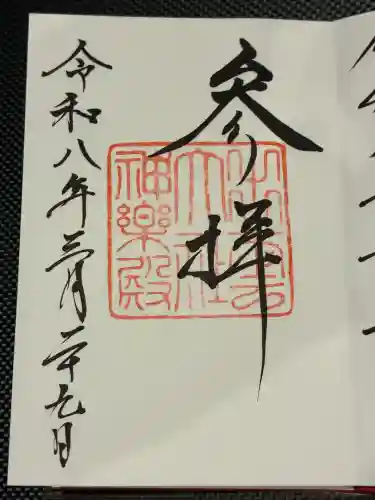 参拝
出雲
大社
神楽殿
令和八年三月二十九日